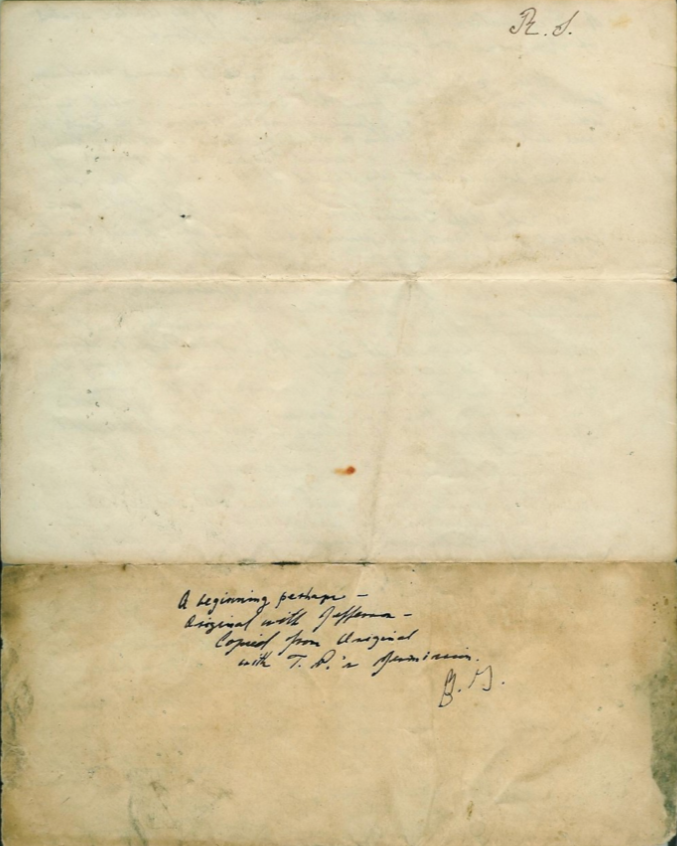 R. S.
A beginning perhaps –
Original with Jefferson –
Copied from Original
with T. P.'s permission.